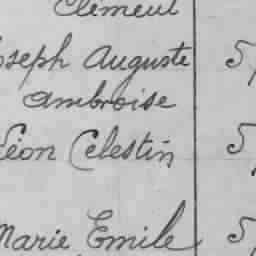 Clément
Joseph Auguste 5
Ambroise
Léon Celestin 5
Marie Emile 5